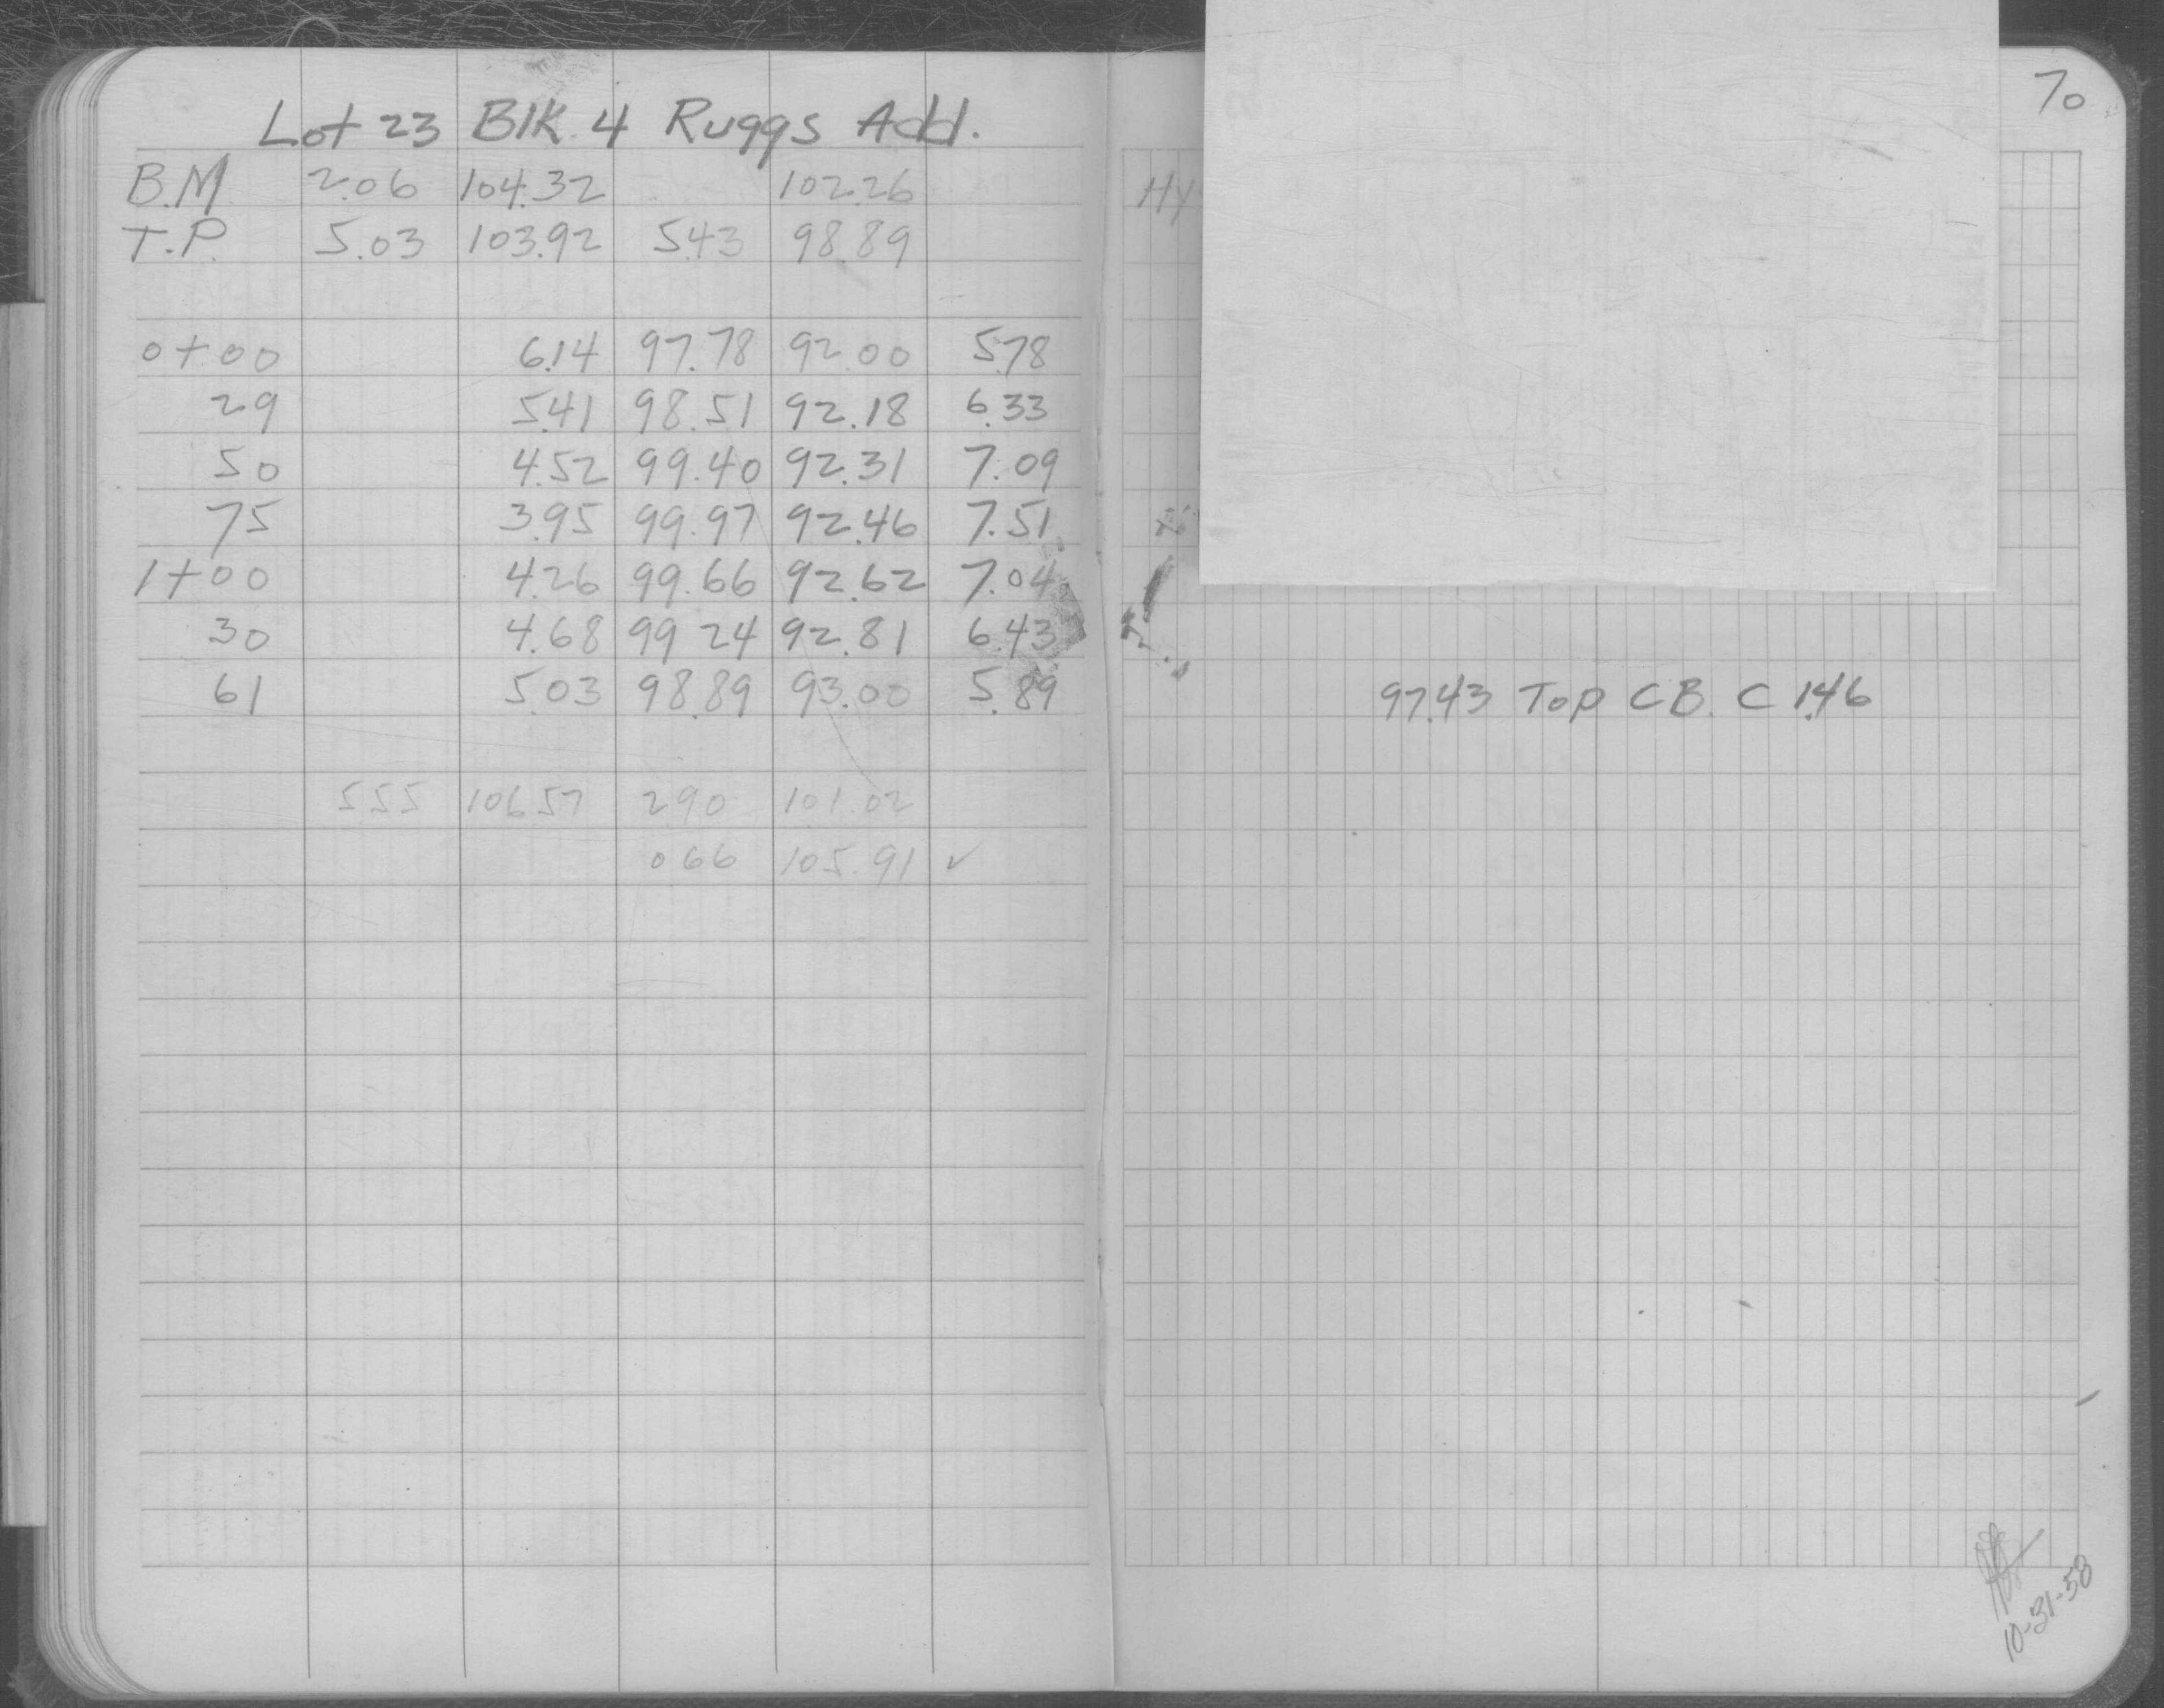 70
Lot 23 Blk. 4 Ruggs Add.
B.M 2.06 104.32 102.26
T.P. 5.03 103.92 5.43 98.89
0+00 6.14 97.78 92.00 5.78
29 5.41 98.51 92.18 6.33
50 4.52 99.40 92.31 7.09
75 3.95 99.97 92.46 7.51
1+00 4.26 99.66 92.62 7.04
30 4.68 99.24 92.81 6.43
61 5.03 98.89 93.00 5.89
97.43 Top C B. C 1.46
555 106 57 290 101.02
066 105.91 ✓
10-31-58